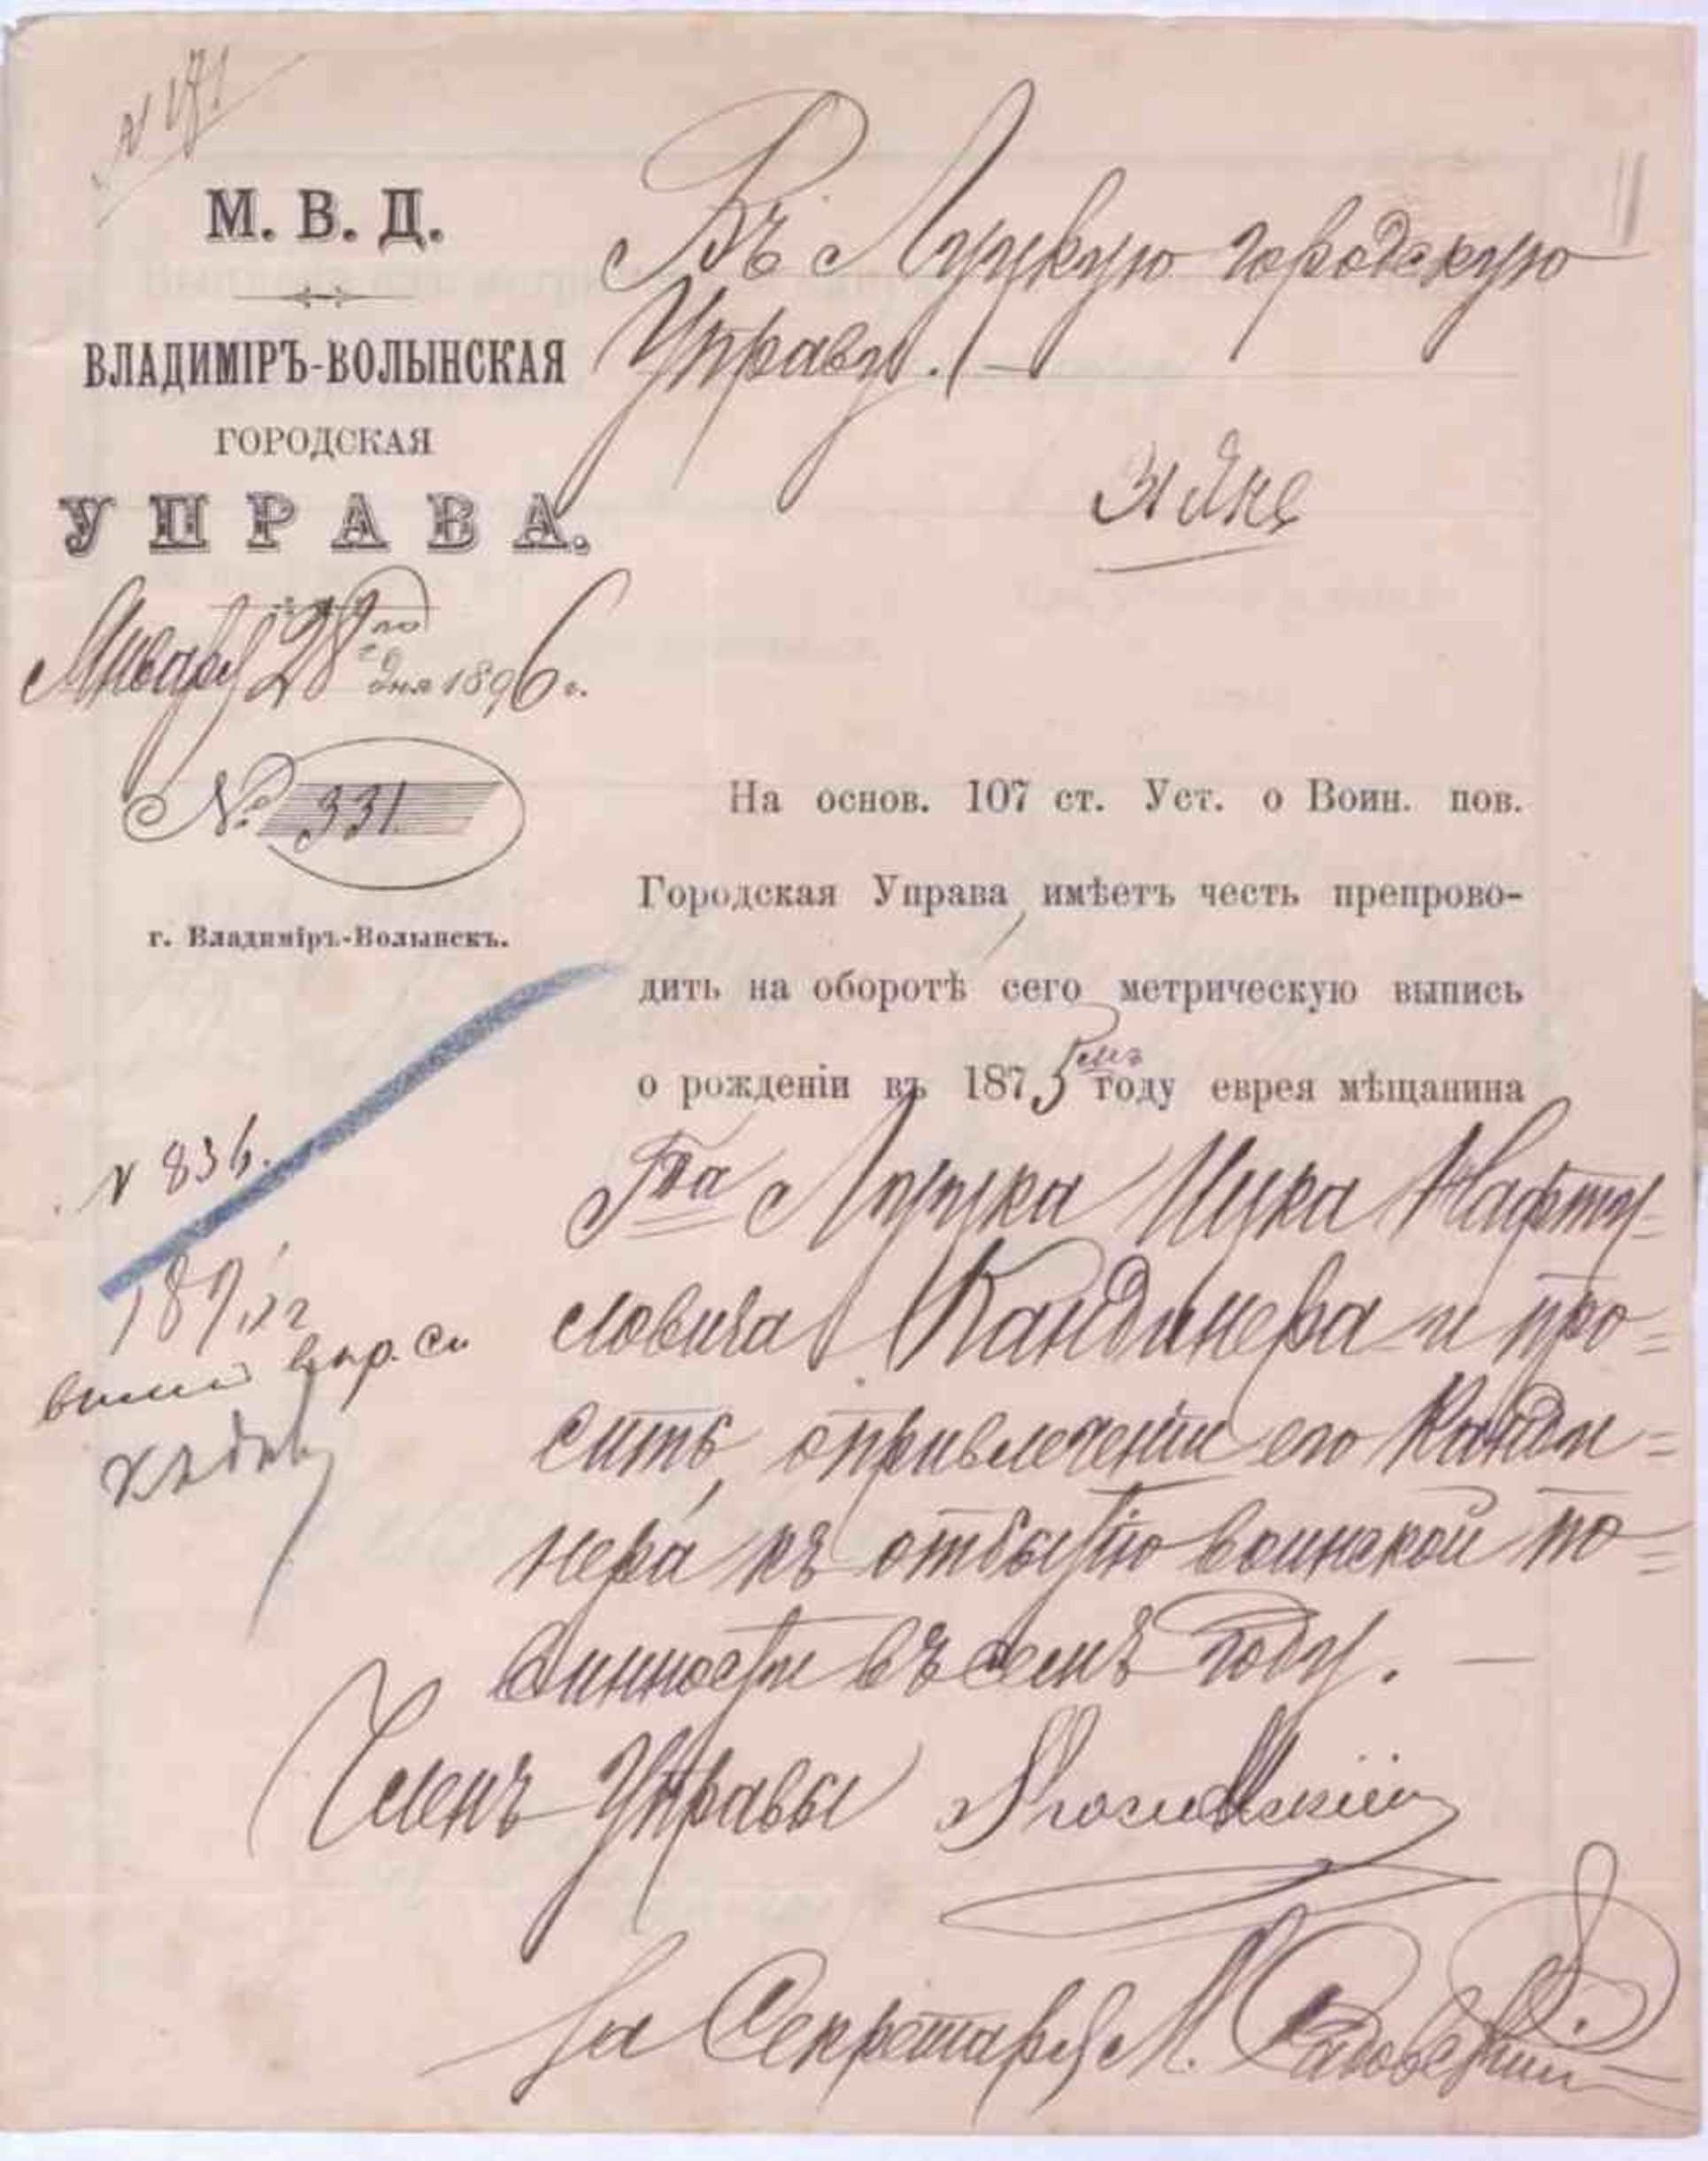 М. В. Д.
ВЛАДИМІРЪ-ВОЛЫНСКАЯ
ГОРОДСКАЯ
УПРАВА.
Января 28го дня 1896 г.
№ 331
г. Владиміръ-Волынскъ.
Въ Луцкую городскую
Управу.
31 Янв
На основ. 107 ст. Уст. о Воин. пов.
Городская Управа имѣетъ честь препрово-
дить на оборотѣ сего метрическую выпись
о рожденіи въ 1875 году еврея мѣщанина
Гда Луцка Ицка Нафту-
ловича Кандинера и про-
ситъ, опривлеченіи его Канди-
нера къ отбытію воинской по-
винности въ семъ году.
N 836.
Членъ Управы
За Секретаря М.